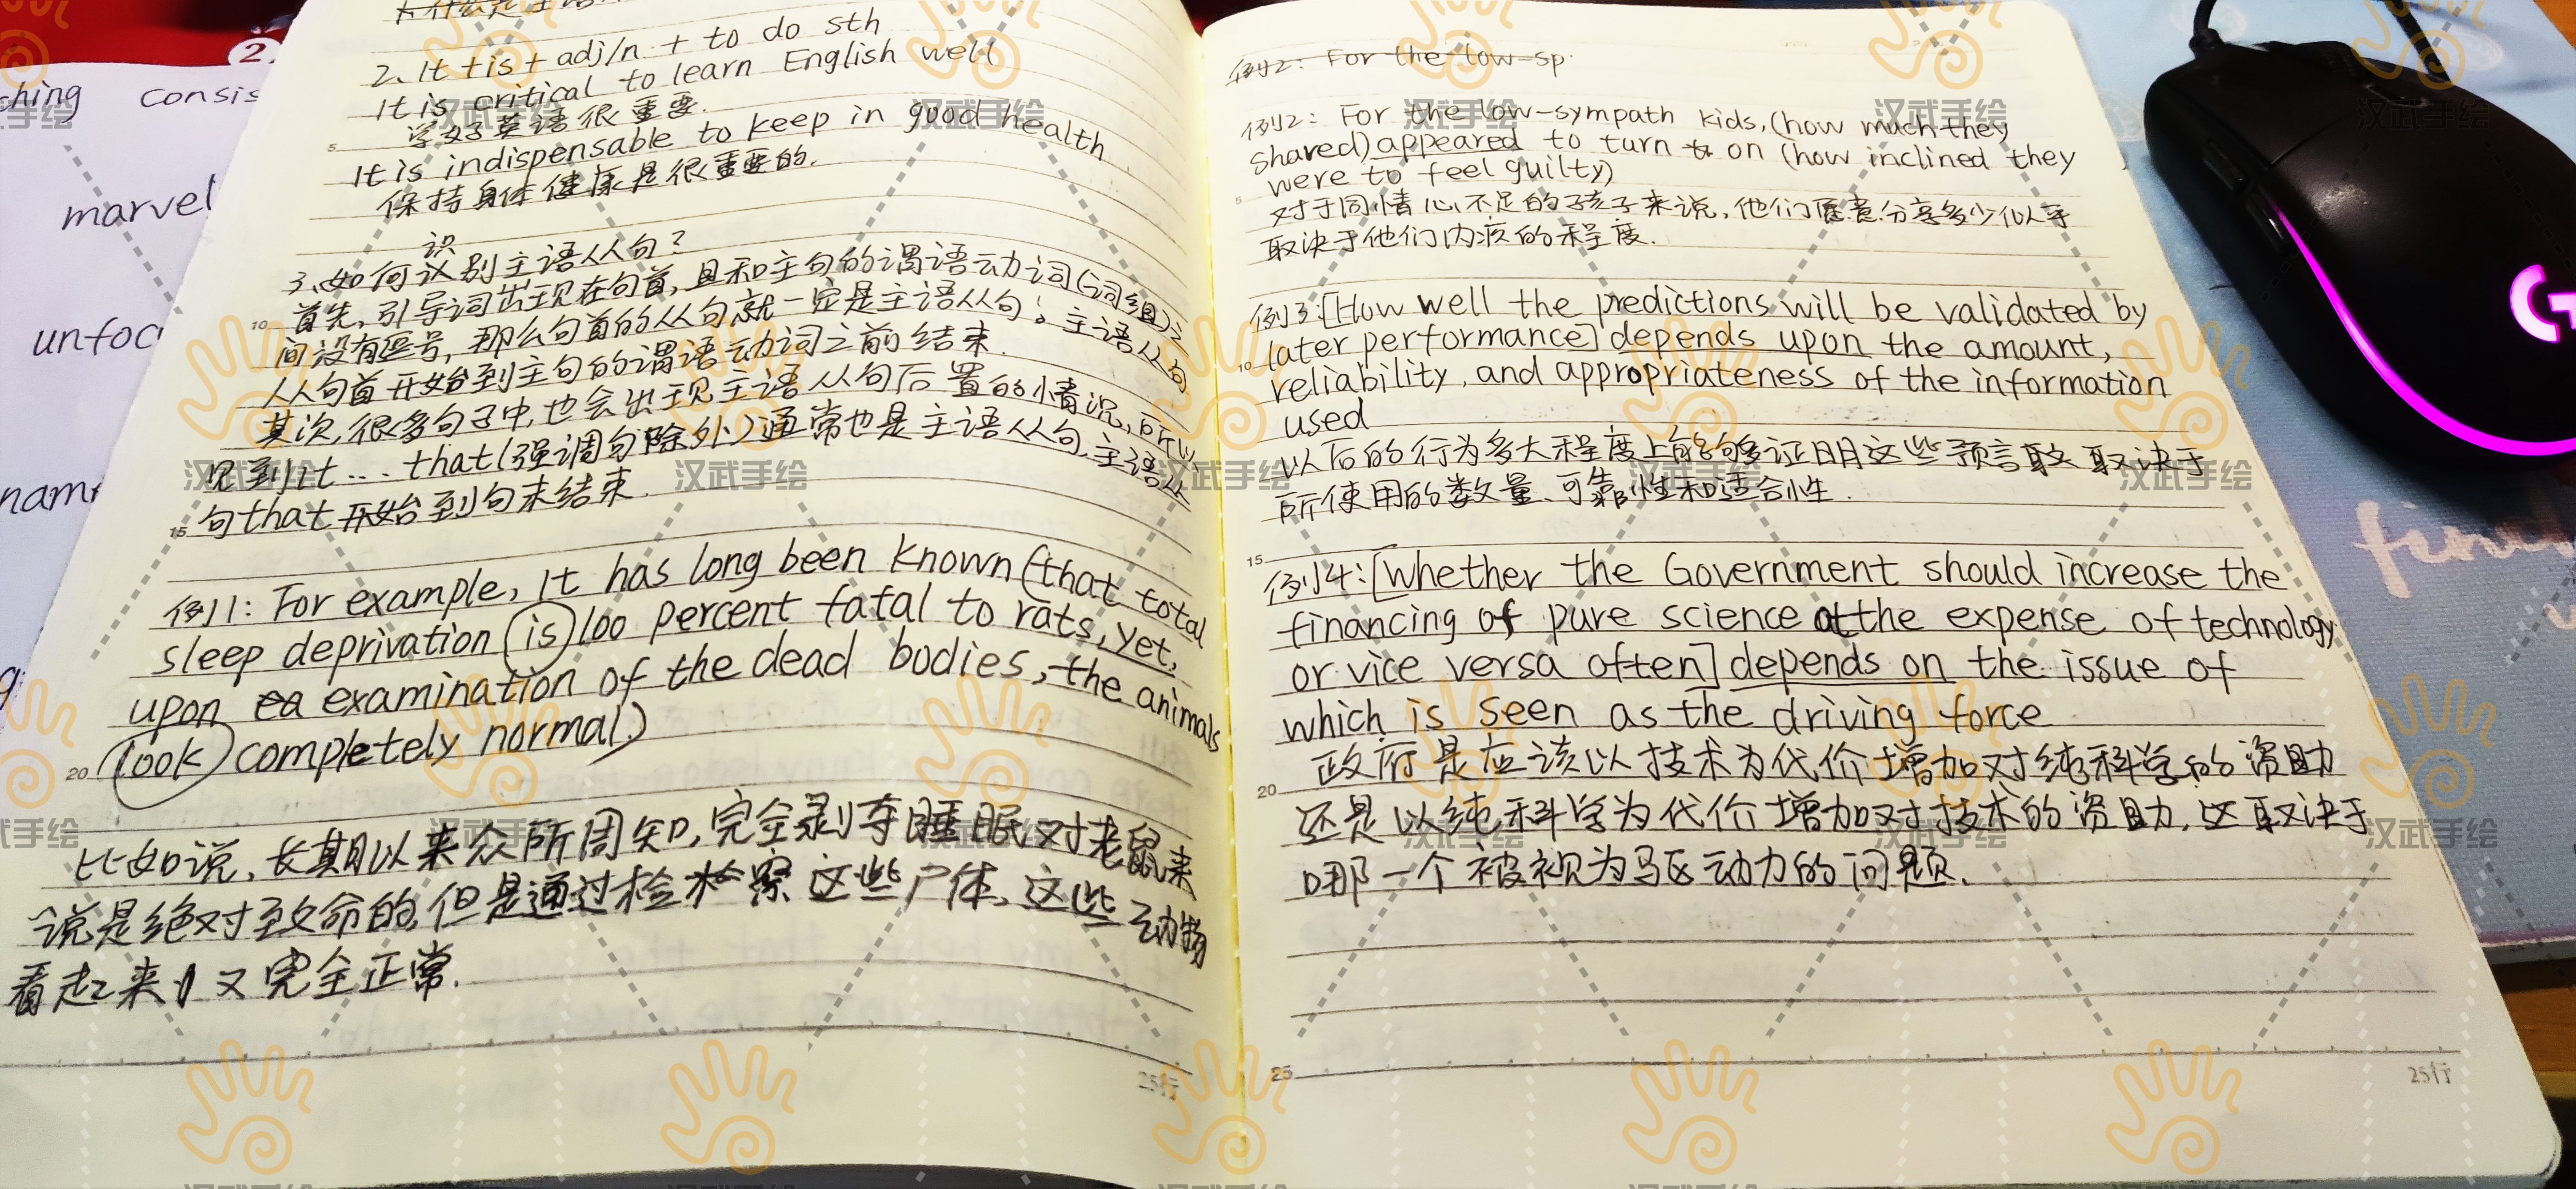 2、It + is + adj/n + to do sth
It is critical to learn English well
学好英语很重要.
It is indispensable to keep in good health
保持身体健康是很重要的.
识
3、如何识别主语从句?
首先,引导词出现在句首,且和主句的谓语动词(词组)之
间没有逗号,那么句首的从句就一定是主语从句;主语从句
从句首开始到主句的谓语动词之前结束.
其次,很多句子中,也会出现主语从句后置的情况,所以
见到it...that(强调句除外)通常也是主语从句,主语从
句that开始到句末结束.
例1: For example, It has long been known (that total
sleep deprivation is 100 percent fatal to rats, yet,
upon ea examination of the dead bodies, the animals
look completely normal.)
比如说,长期以来众所周知,完全剥夺睡眠对老鼠来
说是绝对致命的,但是通过检察这些尸体,这些动物
看起来又完全正常.
25行
ching consis
marvel
unfoc
nam
2.
例2: For the low-sp
例2: For the low-sympath kids, (how much they
shared) appeared to turn on (how inclined they
were to feel guilty)
对于同情心不足的孩子来说,他们愿意分享多少似乎
取决于他们内疚的程度.
例3:[How well the predictions will be validated by
later performance] depends upon the amount,
reliability, and appropriateness of the information
used
以后的行为多大程度上能够证明这些预言取决于
所使用的数量、可靠性和适合性.
例4:[Whether the Government should increase the
financing of pure science at the expense of technology
or vice versa often] depends on the issue of
which is seen as the driving force
政府是应该以技术为代价增加对纯科学的资助
还是以纯科学为代价增加对技术的资助,这取决于
哪一个被视为驱动力的问题.
25行
汉武手绘